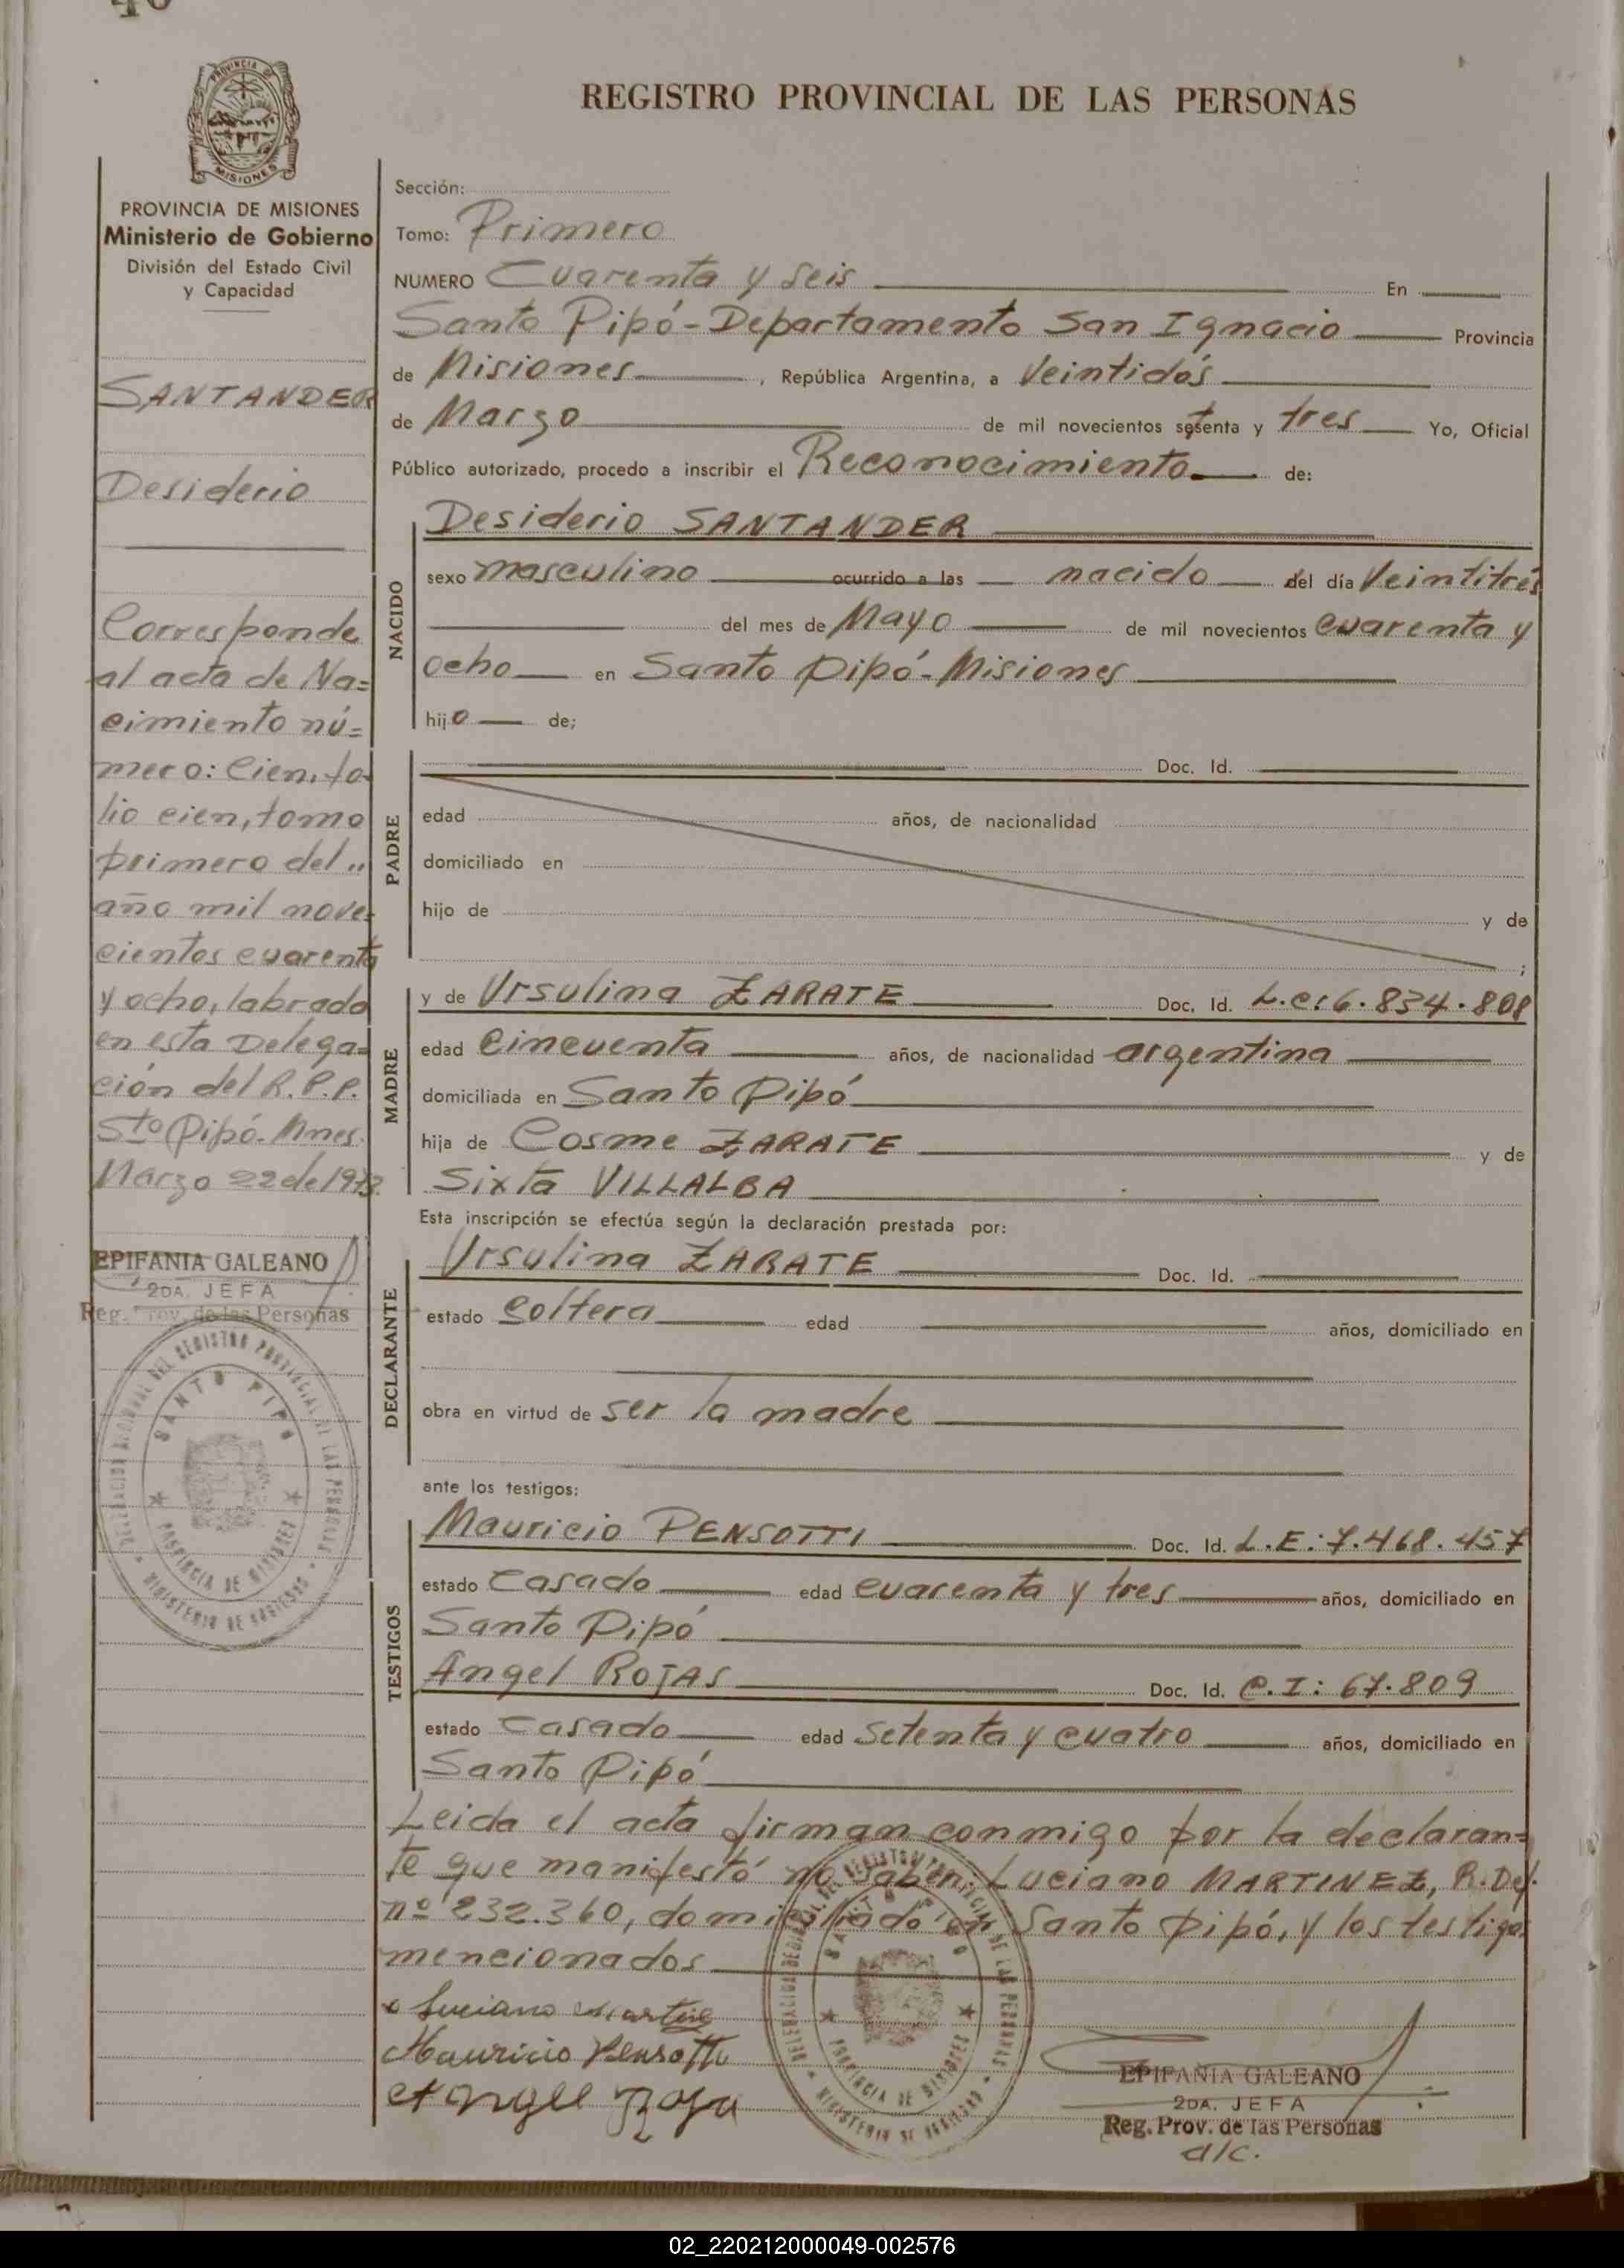 REGISTRO PROVINCIAL DE LAS PERSONAS
PROVINCIA DE
MISIONES
PROVINCIA DE MISIONES
Ministerio de Gobierno
División del Estado Civil
y Capacidad
SANTANDER
Desiderio
Corresponde
al acta de Na=
cimiento nú=
mero: Cien, fo-
lio cien, tomo
primero del "
año mil nove=
cientos cuarenta
y ocho, labrado
en esta Delega=
ción del R.P.P.
Sto Pipó. Mnes.
Marzo 22 de 1973.
EPIFANIA GALEANO
2DA. JEFA
Reg. Prov. de las Personas
SANTO PIPO
PROVINCIA DE MISIONES
Sección:
Tomo: Primero
NUMERO Cuarenta y seis En
Santo Pipó-Departamento San Ignacio Provincia
de Misiones, República Argentina, a Veintidós
de Marzo de mil novecientos setenta y tres Yo, Oficial
Público autorizado, procedo a inscribir el Reconocimiento de:
NACIDO
Desiderio SANTANDER
sexo masculino ocurrido a las nacido del día Veintitrés
del mes de Mayo de mil novecientos cuarenta y
ocho en Santo Pipó-Misiones
hijo de;
PADRE
Doc. Id.
edad años, de nacionalidad
domiciliado en
hijo de y de
;
MADRE
y de Ursulina ZARATE Doc. Id. L.C:6.834.808
edad Cincuenta años, de nacionalidad argentina
domiciliada en Santo Pipó
hija de Cosme ZARATE y de
Sixta VILLALBA
Esta inscripción se efectúa según la declaración prestada por:
DECLARANTE
Ursulina ZARATE Doc. Id.
estado soltera edad años, domiciliado en
obra en virtud de ser la madre
ante los testigos:
TESTIGOS
Mauricio PENSOTTI Doc. Id. L.E:7.468.457
estado Casado edad cuarenta y tres años, domiciliado en
Santo Pipó
Angel ROJAS Doc. Id. C.I: 67.809
estado Casado edad setenta y cuatro años, domiciliado en
Santo Pipó
Leida el acta firman conmigo por la declaran=
te que manifestó no saber. Luciano MARTINEZ, R.Def.
nº 232.360, domiciliado en Santo Pipó, y los testigos
mencionados
Luciano Martine
Mauricio Pensotti
Angel Roja
SANTO PIPO
PROVINCIA DE MISIONES
EPIFANIA GALEANO
2DA. JEFA
Reg. Prov. de las Personas
a/c.
02_220212000049-002576